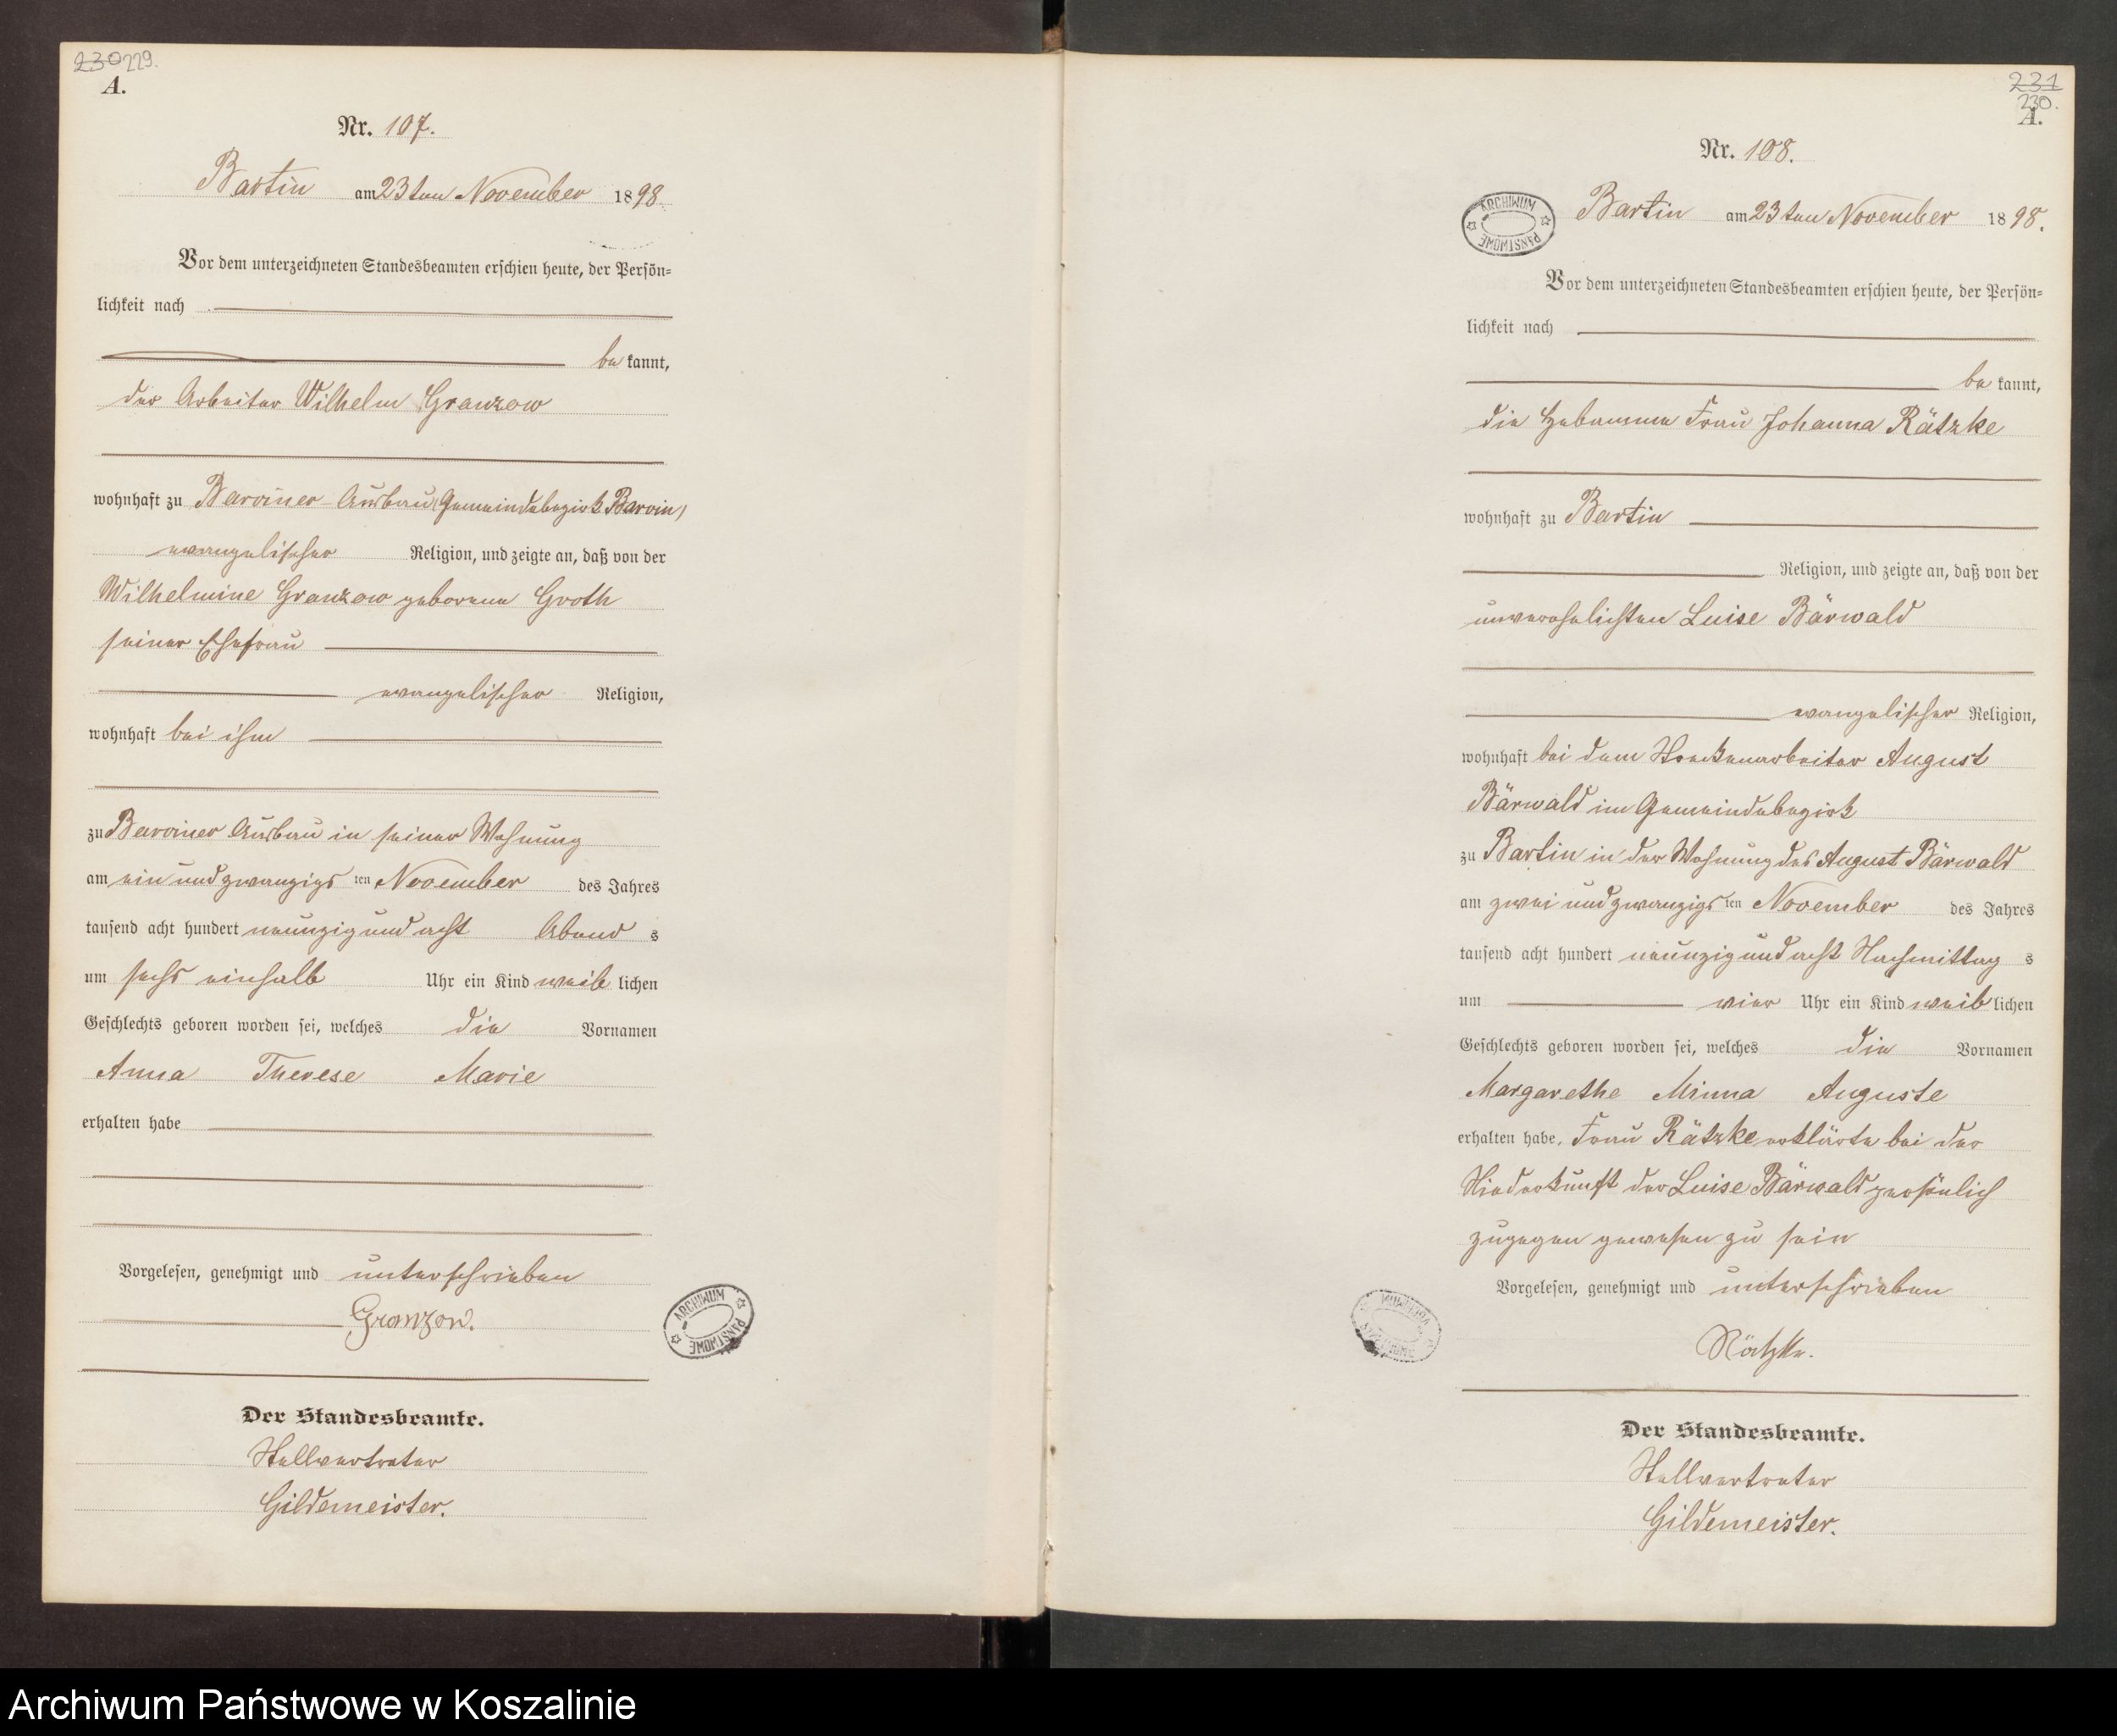 230 229.
A.
Nr. 107.
Bartin am 23ten November 1898.
Vor dem unterzeichneten Standesbeamten erschien heute, der Persön=
lichkeit nach
be kannt,
der Arbeiter Wilhelm Granzow
wohnhaft zu Barviner-Ausbau (Gemeindebezirk Barvin)
evangelischer Religion, und zeigte an, daß von der
Wilhelmine Granzow geborene Groth
seiner Ehefrau
evangelischer Religion,
wohnhaft bei ihm
zu Barviner Ausbau in seiner Wohnung
am ein und zwanzigsten November des Jahres
tausend acht hundert neunzig und acht Abend s
um sechs einhalb Uhr ein Kind weib lichen
Geschlechts geboren worden sei, welches die Vornamen
Anna Therese Marie
erhalten habe
Vorgelesen, genehmigt und unterschrieben
Granzow.
Der Standesbeamte.
Stellvertreter
Gildemeister.
ARCHIWUM PAŃSTWOWE
231
230.
A.
Nr. 108.
ARCHIWUM PAŃSTWOWE
Bartin am 23ten November 1898.
Vor dem unterzeichneten Standesbeamten erschien heute, der Persön=
lichkeit nach
be kannt,
die Hebamme Frau Johanna Rätzke
wohnhaft zu Bartin
Religion, und zeigte an, daß von der
unverehelichten Luise Bärwald
evangelischer Religion,
wohnhaft bei dem Streckenarbeiter August
Bärwald im Gemeindebezirk
zu Bartin in der Wohnung des August Bärwald
am zwei und zwanzigsten November des Jahres
tausend acht hundert neunzig und acht Nachmittag s
um vier Uhr ein Kind weib lichen
Geschlechts geboren worden sei, welches die Vornamen
Margarethe Minna Auguste
erhalten habe. Frau Rätzke erklärte bei der
Niederkunft der Luise Bärwald persönlich
zugegen gewesen zu sein
Vorgelesen, genehmigt und unterschrieben
Rätzke.
Der Standesbeamte.
Stellvertreter
Gildemeister.
Archiwum Państwowe w Koszalinie